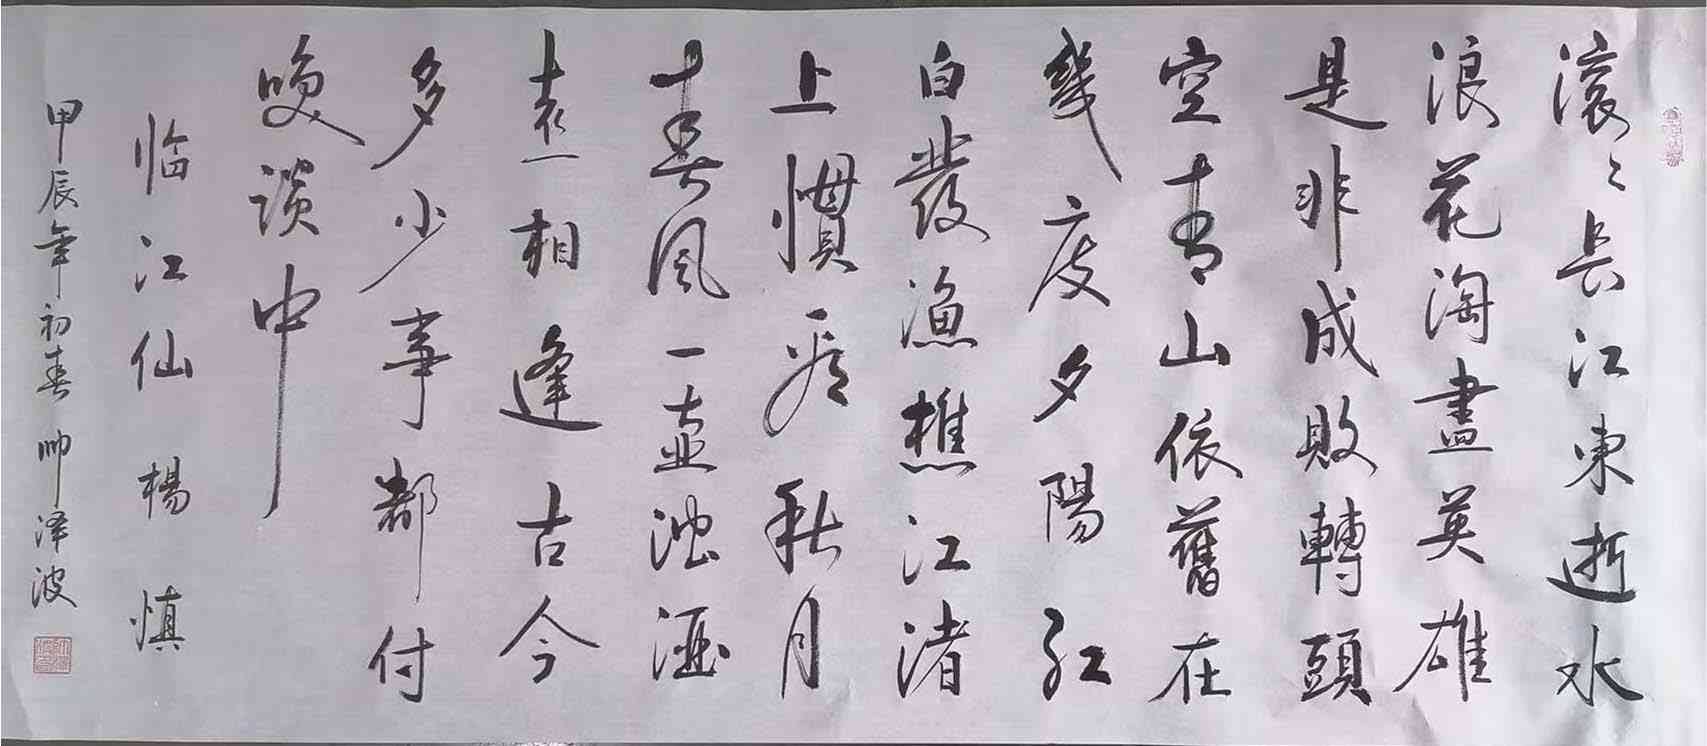 滚〻長江東逝水
浪花淘盡英雄
是非成敗轉頭
空青山依舊在
幾度夕陽紅
白發漁樵江渚
上慣看秋月
春風一壺浊酒
喜相逢古今
多少事都付
咲談中
临江仙 楊慎
甲辰年初春 帅泽波